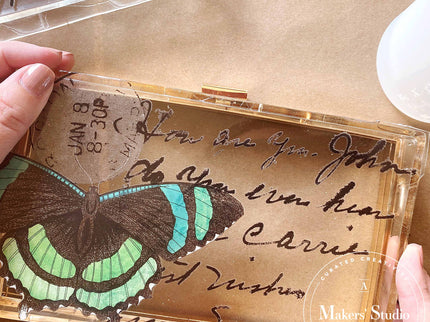 JAN 8
8-30P
MASS
How are you John
do you ever hear
Carrie
best wishes
CURATED CREAT
A
MAKERS' STUDIO